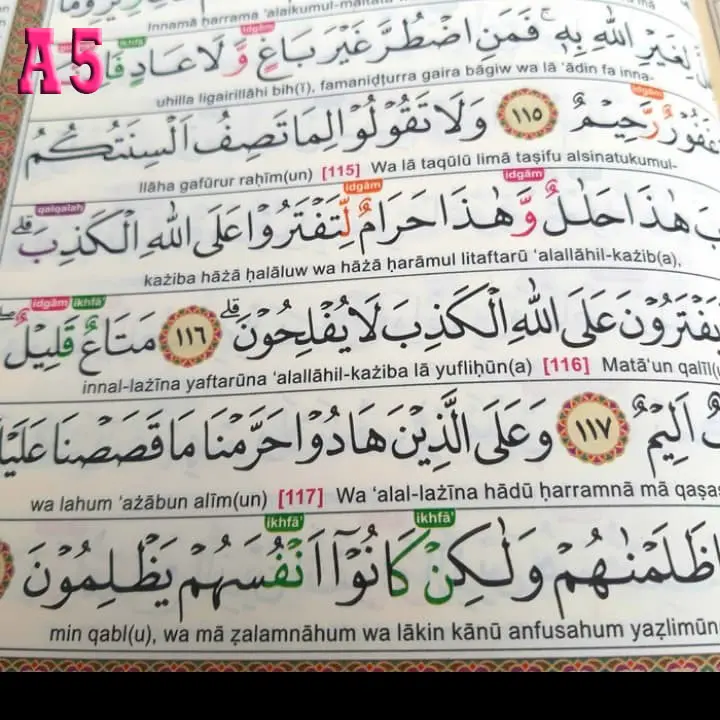 Innamā ḥarrama 'alaikumul-maitata
A5
لِغَيْرِ اللّٰهِ بِهٖۚ فَمَنِ اضْطُرَّ غَيْرَ بَاغٍ وَّلَا عَادٍ فَاِ
idgām
ikhfā'
uhilla ligairillāhi bih(ī), famaniḍṭurra gaira bāgiw wa lā 'ādin fa inna-
idgām
غَفُوْرٌ رَّحِيْمٌ ١١٥ وَلَا تَقُوْلُوْا لِمَا تَصِفُ اَلْسِنَتُكُمُ
llāha gafūrur raḥīm(un) [115] Wa lā taqūlū limā taṣifu alsinatukumul-
idgām
idgām
qalqalah
هٰذَا حَلٰلٌ وَّهٰذَا حَرَامٌ لِّتَفْتَرُوْا عَلَى اللّٰهِ الْكَذِبَۗ
każiba hāżā ḥalāluw wa hāżā ḥarāmul litaftarū 'alallāhil-każib(a),
يَفْتَرُوْنَ عَلَى اللّٰهِ الْكَذِبَ لَا يُفْلِحُوْنَۗ ١١٦ مَتَاعٌ قَلِيْلٌۖ
ikhfā'
idgām
innal-lażīna yaftarūna 'alallāhil-każiba lā yufliḥūn(a) [116] Matā'un qalīl(u
اَلِيْمٌ ١١٧ وَعَلَى الَّذِيْنَ هَادُوْا حَرَّمْنَا مَا قَصَصْنَا عَلَيْ
wa lahum 'ażābun alīm(un) [117] Wa 'alal-lażīna hādū ḥarramnā mā qaṣaṣ
ikhfā'
ikhfā'
ظَلَمْنٰهُمْ وَلٰكِنْ كَانُوْٓا اَنْفُسَهُمْ يَظْلِمُوْنَ
min qabl(u), wa mā ẓalamnāhum wa lākin kānū anfusahum yaẓlimūn